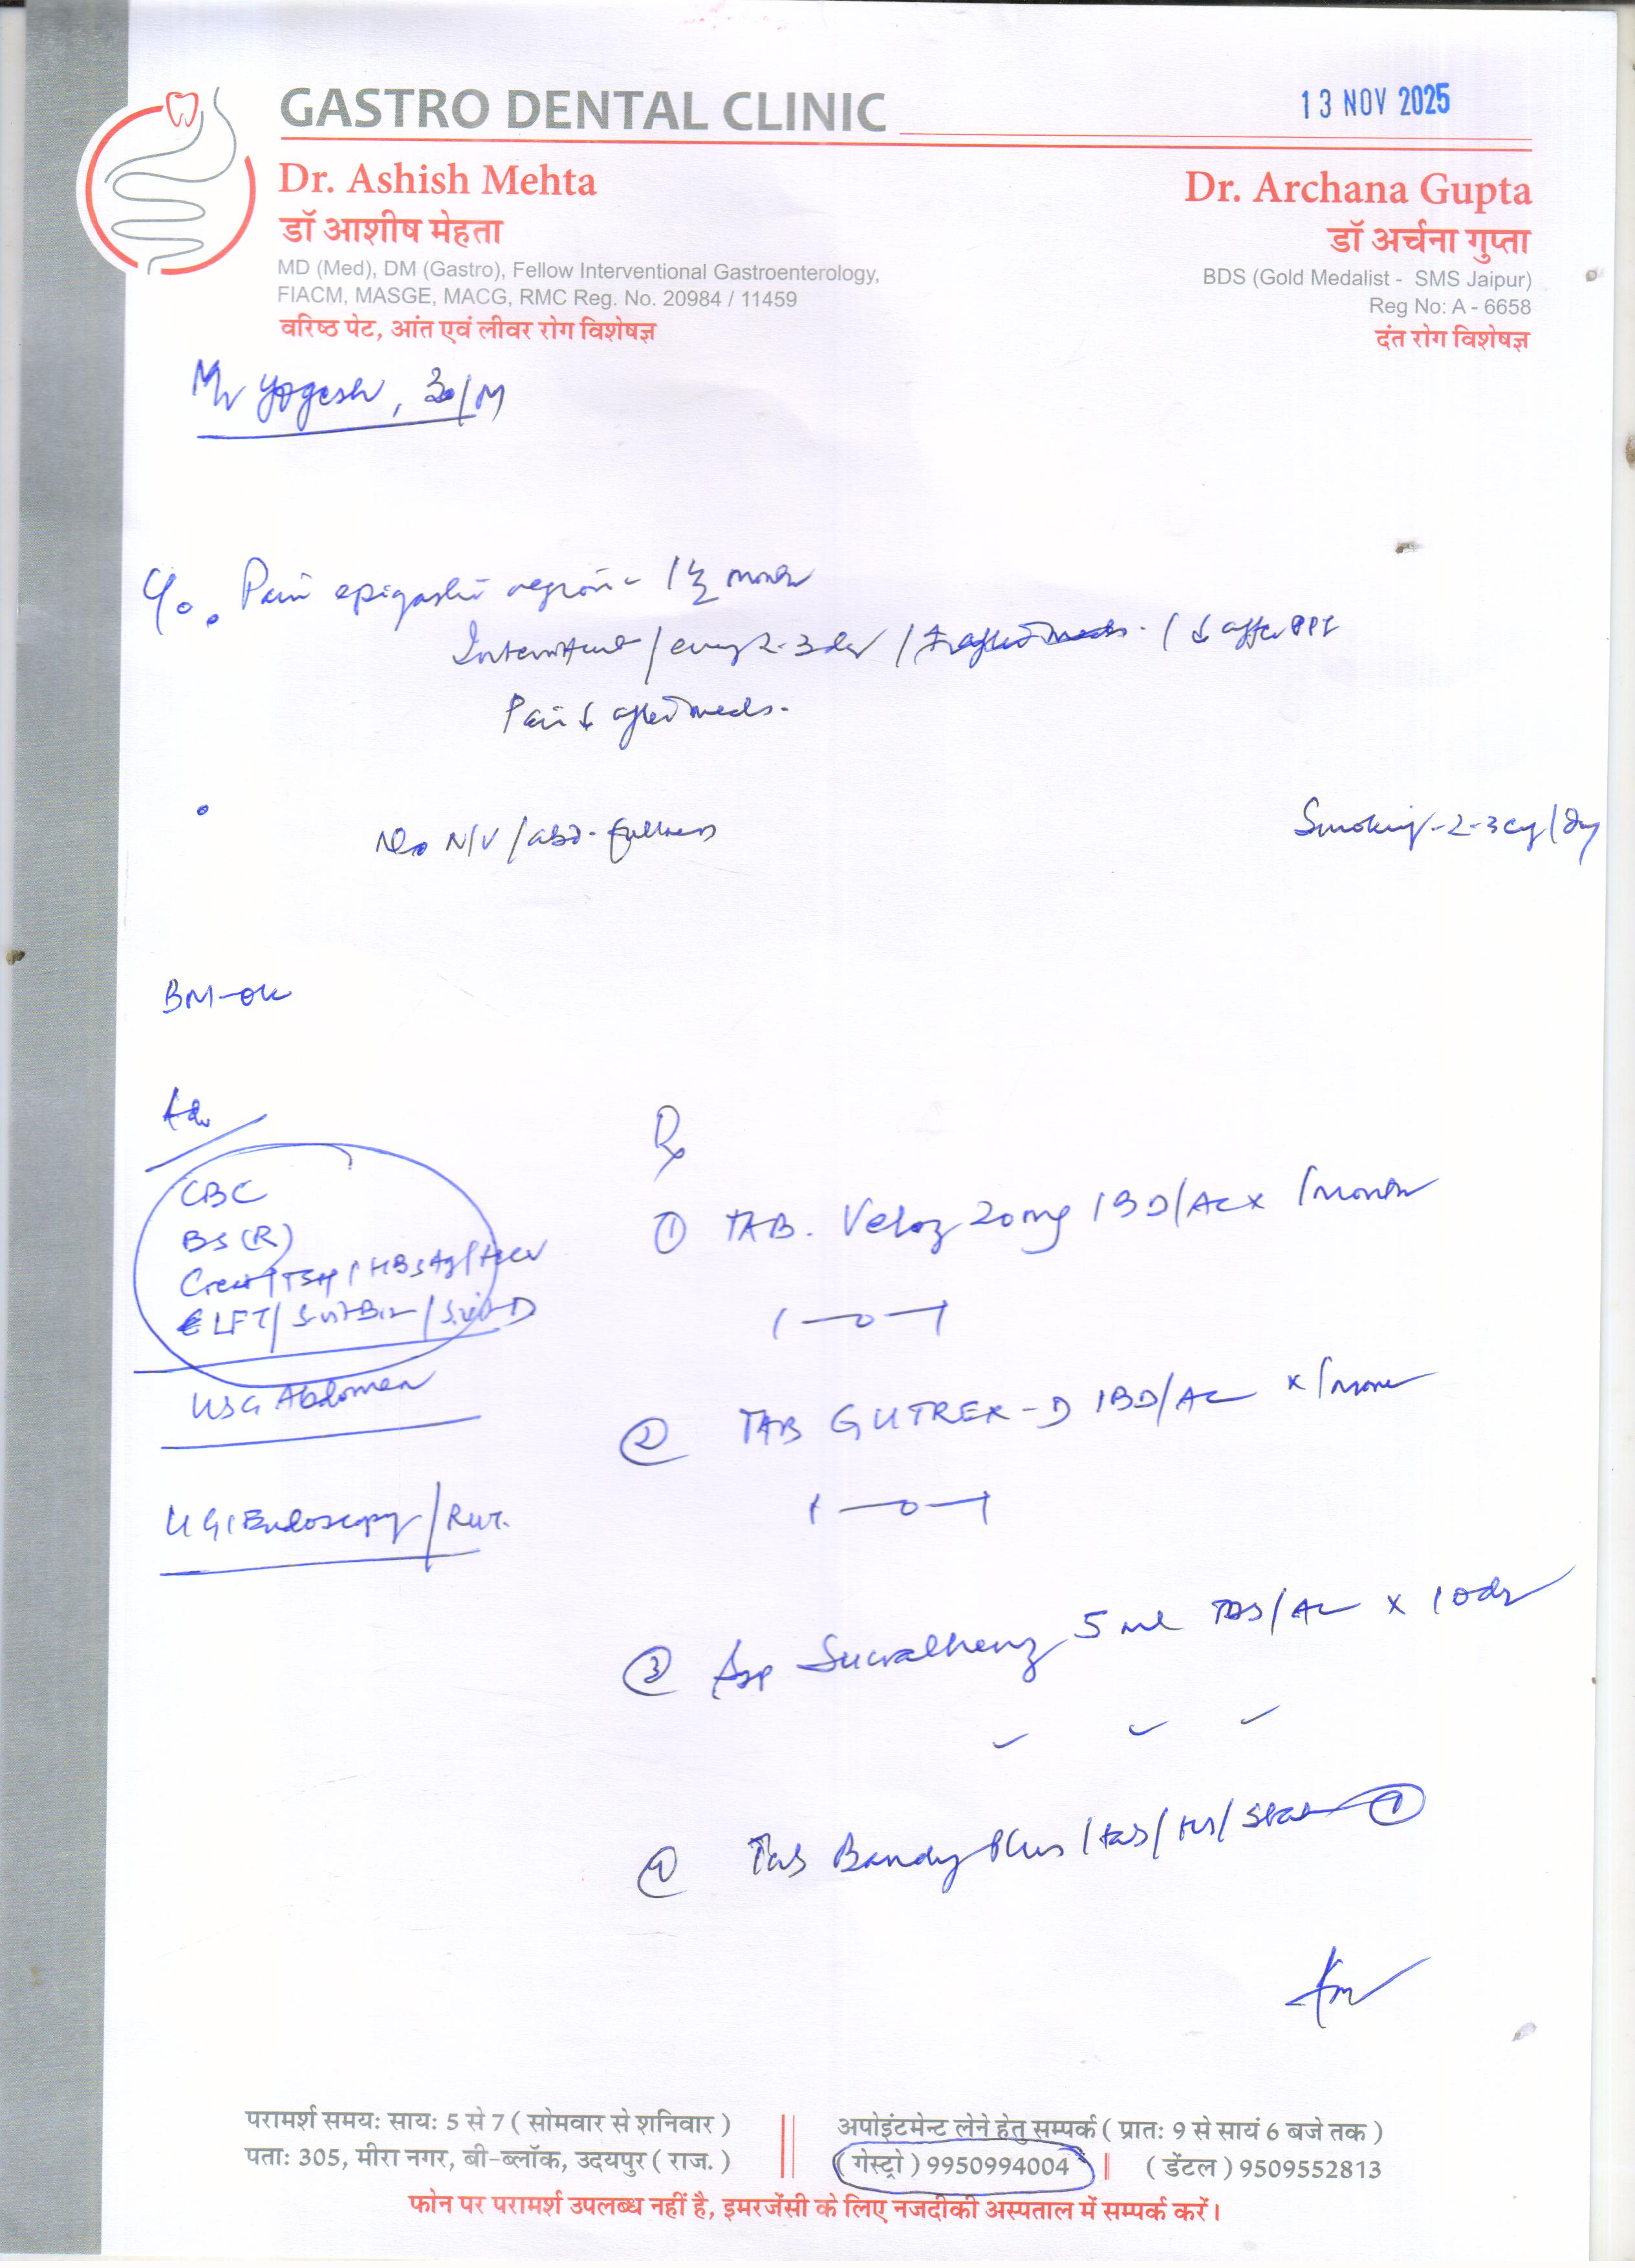 GASTRO DENTAL CLINIC
13 NOV 2025
Dr. Ashish Mehta
डॉ आशीष मेहता
MD (Med), DM (Gastro), Fellow Interventional Gastroenterology,
FIACM, MASGE, MACG, RMC Reg. No. 20984 / 11459
वरिष्ठ पेट, आंत एवं लीवर रोग विशेषज्ञ
Dr. Archana Gupta
डॉ अर्चना गुप्ता
BDS (Gold Medalist - SMS Jaipur)
Reg No: A - 6658
दंत रोग विशेषज्ञ
Mr Yogesh, 30/M
C/o. Pain epigastric region - 1½ month
Intermittent / every 2-3 day / ↓ after PPI
Pain ↓ after meals.
No N/V / abd. fullness
Smoking - 2-3 cig / day
BM - OK
Adv
CBC
BS (R)
Creat / TSH / HBsAg / HCV
LFT / S. Vit B12 / S. Vit D
USG Abdomen
UGI Endoscopy /
Rx
① TAB. Veloz 20mg 1 BD/AC x 1 month
1 — 0 — 1
② TAB GUTREX-D 1 BD/AC x 1 month
1 — 0 — 1
③ Syp 5 ml TDS/AC x 10 day
✓ ✓ ✓
④ Tab Bandy Plus 1 tab / HS / Stat — ①
परामर्श समय: साय: 5 से 7 ( सोमवार से शनिवार )
पता: 305, मीरा नगर, बी-ब्लॉक, उदयपुर ( राज. )
अपोइंटमेन्ट लेने हेतु सम्पर्क ( प्रात: 9 से सायं 6 बजे तक )
( गेस्ट्रो ) 9950994004 | ( डेंटल ) 9509552813
फोन पर परामर्श उपलब्ध नहीं है, इमरजेंसी के लिए नजदीकी अस्पताल में सम्पर्क करें।